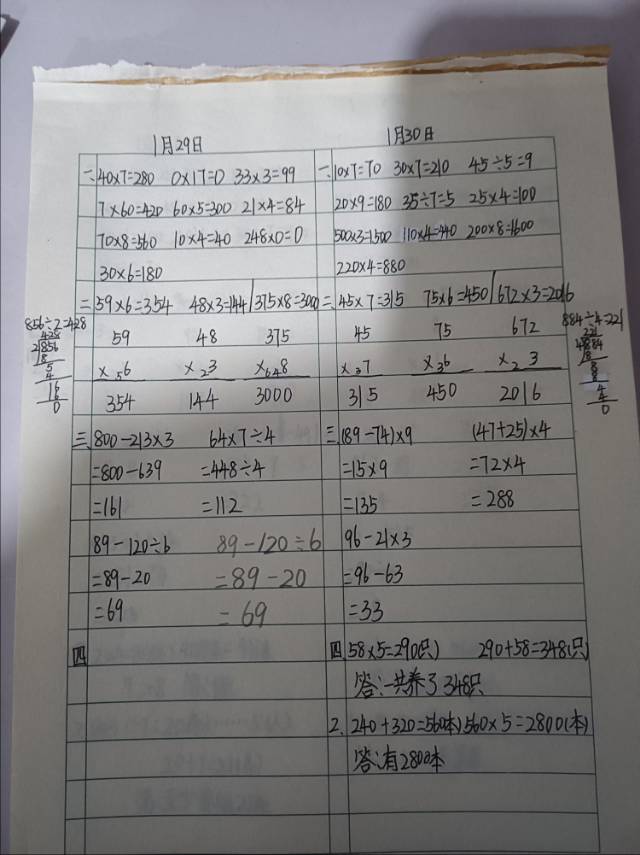 1月29日
一、40×7=280 0×17=0 33×3=99
7×60=420 60×5=300 21×4=84
70×8=560 10×4=40 248×0=0
30×6=180
二、59×6=354 48×3=144 375×8=3000
856÷2=428
59 48 375
×56 ×23 ×648
354 144 3000
428
2)854
8
5
4
16
0
三、800-213×3 64×7÷4
=800-639 =448÷4
=161 =112
89-120÷6 89-120÷6
=89-20 =89-20
=69 =69
四
1月30日
一、10×7=70 30×7=210 45÷5=9
20×9=180 35÷7=5 25×4=100
500×3=1500 110×4=440 200×8=1600
220×4=880
二、45×7=315 75×6=450 672×3=2016
884÷4=221
45 75 672
×37 ×36 ×23
315 450 2016
221
4)884
8
8
8
4
4
0
三、(89-74)×9 (47+25)×4
=15×9 =72×4
=135 =288
96-21×3
=96-63
=33
四、58×5=290(只) 290+58=348(只)
答:一共养了348只
2、240+320=560(本) 560×5=2800(本)
答:有2800本